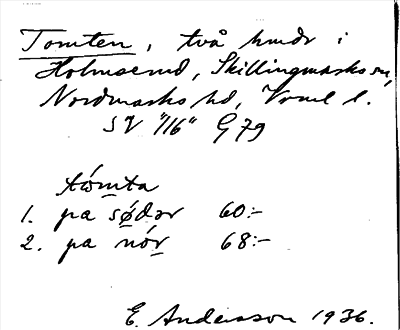 Tomten, två hmdr i
Holmserud, Skillingmarks sn,
Nordmarks hd, Vrml l.
SV "/16" G79
tómta
1. pa sǿdər 60:-
2. pa nór 68:-
E. Andersson 1936.